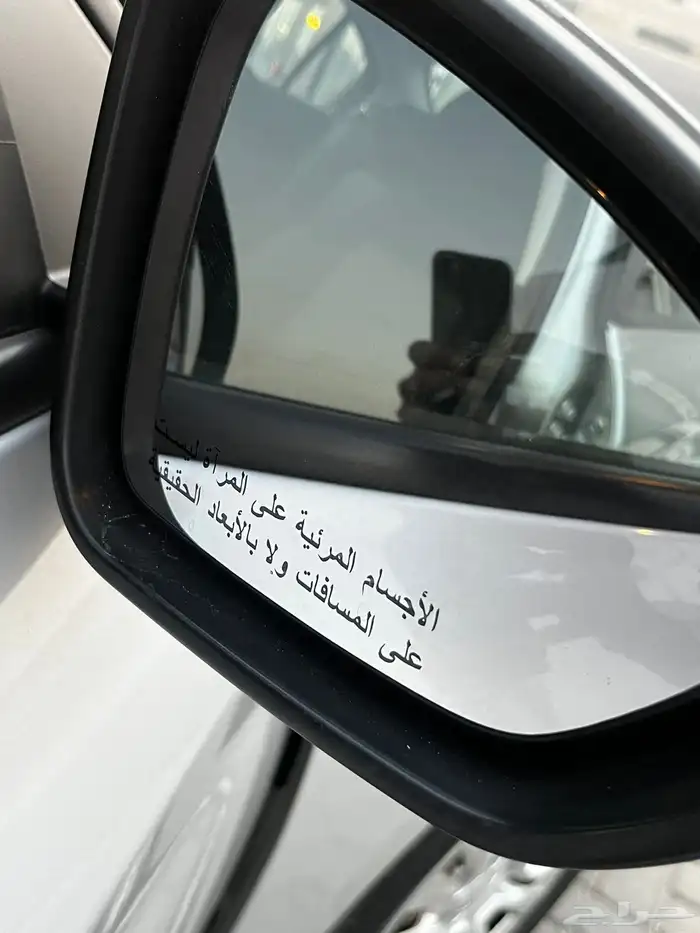 الأجسام المرئية على المرآة ليست
على المسافات ولا بالأبعاد الحقيقية
حراج